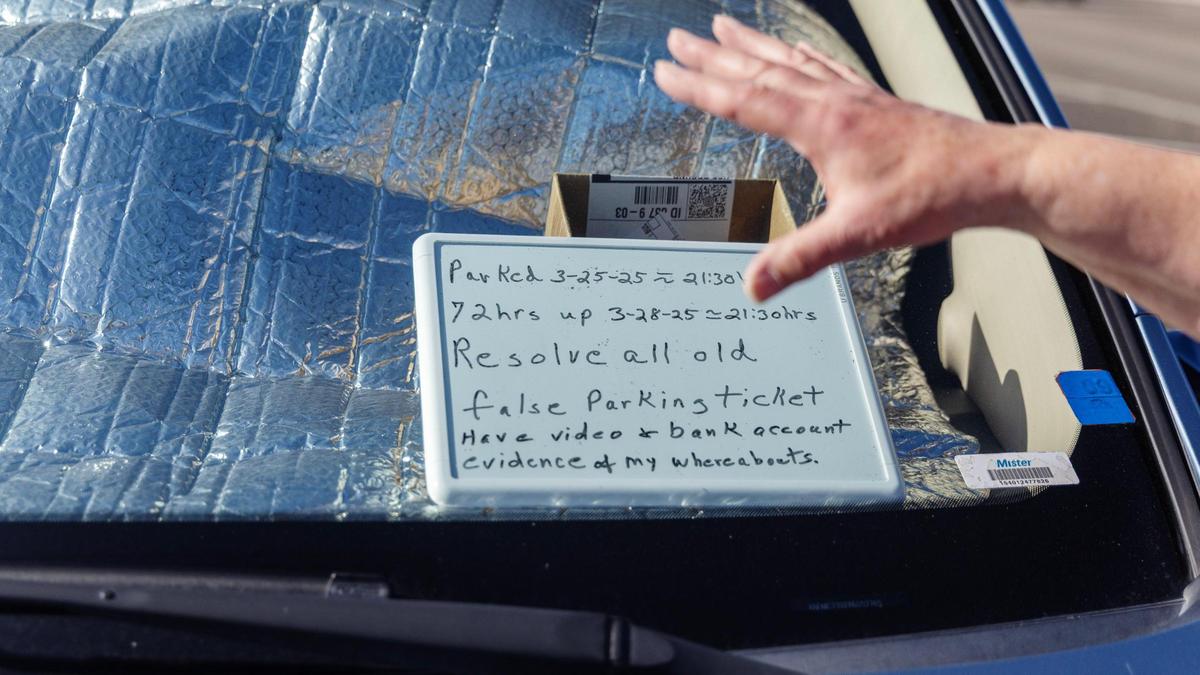 ID 037 9-03
Parked 3-25-25 ≈ 21:30
72hrs up 3-28-25 ≃21:30hrs
Resolve all old
false Parking ticket
Have video & bank account
evidence of my whereabouts.
Mister